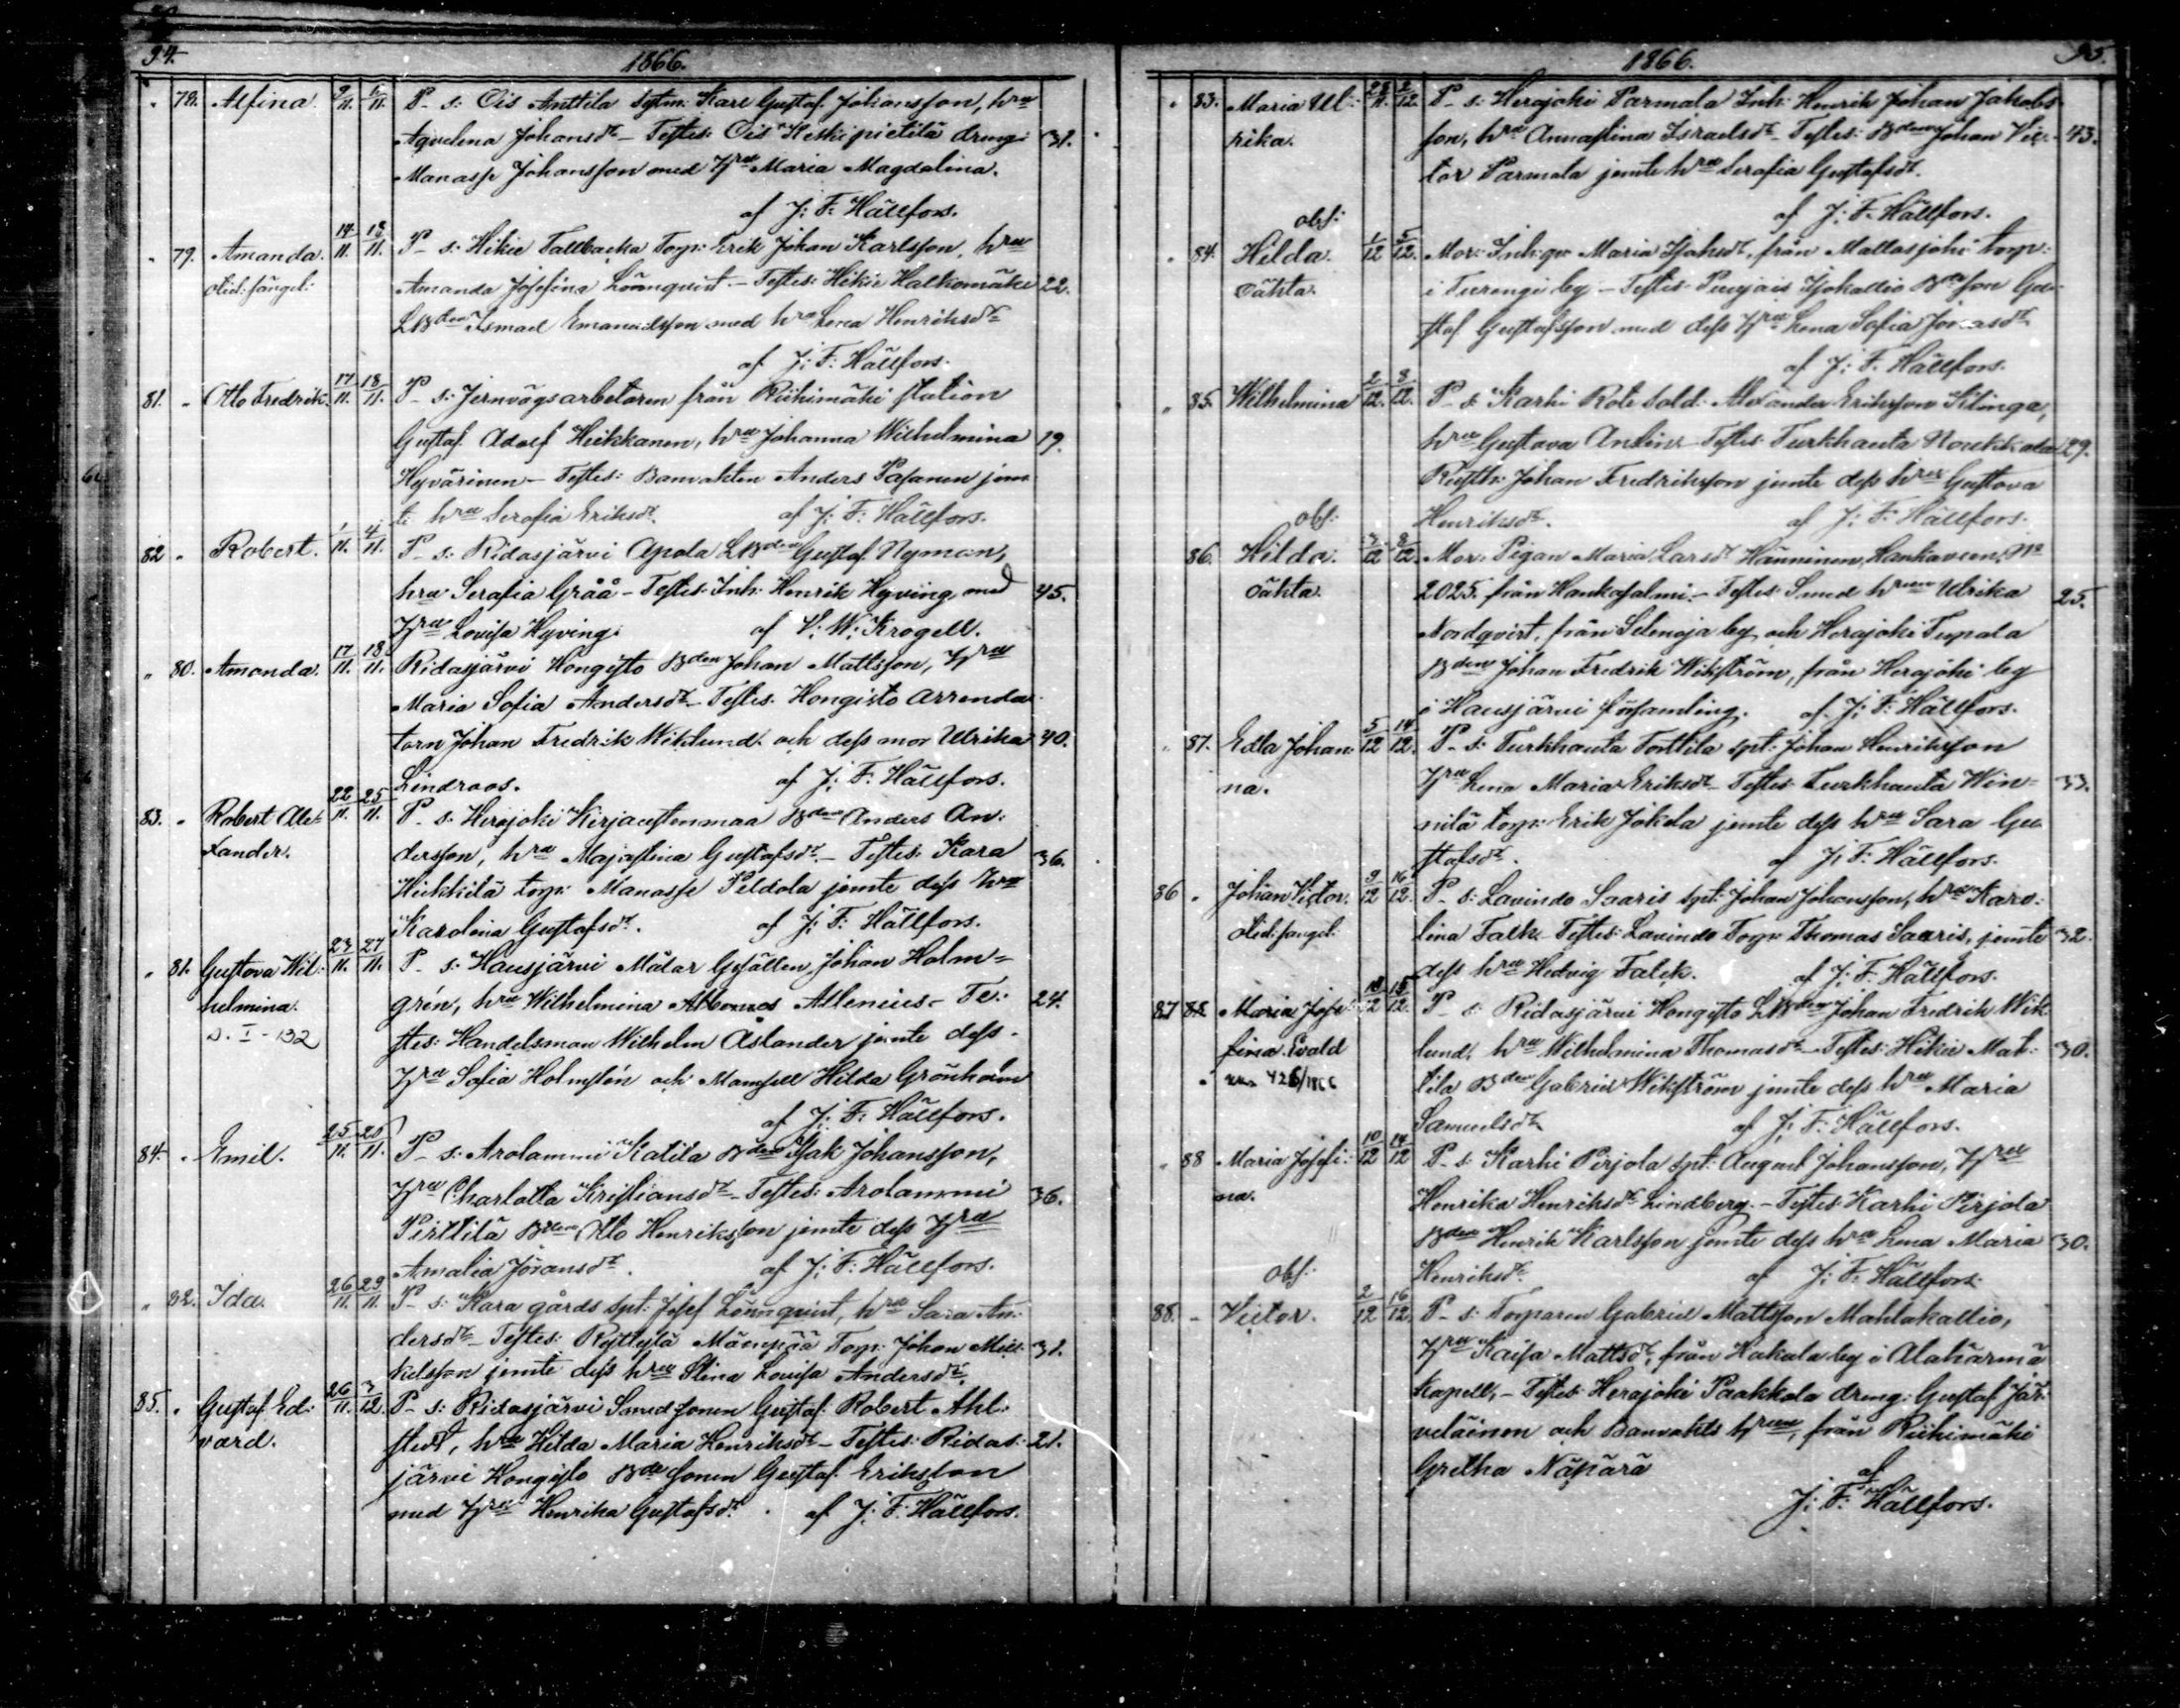 94. 1866.
78. Alfina. 9/11. 11/11. P. s: Ois Anttila Sytn: Karl Gustaf Johansson, hru
Aqvelina Johansdr – Testes: Ois Keskipietilä dreng: 31.
Manasse Johansson med Hru Maria Magdalina.
af J: F: Hällfors.
79. Amanda. 14/11. 18/11. P. s: Hikie Tallbacka Torp: Erik Johan Karlsson, hru
olid: fängel: Amanda Josefina Lönnquist – Testes: Hikie Halkomäki 22.
LBden Ismael Emanuelsson med hru Lena Henriksdr
af J: F: Hällfors.
81. Otto Fredrik. 17/11. 18/11. P. s: Jernvägsarbetaren från Riihimäki station
Gustaf Adolf Heikkanen, hru Johanna Wilhelmina 19.
Hyvärinen – Testes: Banvakten Anders Pasanen jem
te hru Serafia Eriksdr. af J: F: Hällfors.
82. Robert. 1/11. 4/11. P. s: Ridasjärvi Apola LBden Gustaf Nyman,
hru Serafia Gråå – Testes: Inh: Henrik Hyving med 45.
Hru Lovisa Hyving. af V: W: Krogell.
80. Amanda. 17/11. 18/11. Ridasjärvi Hongisto Bden Johan Mattsson, Hru
Maria Sofia Andersdr – Testes: Hongisto Arrenda
torn Johan Fredrik Wiklund och dess mor Ulrika 40.
Lindroos. af J: F: Hällfors.
83. Robert Ale- 22/11. 25/11. P. s: Herajoki Kirjaustenmaa Bden Anders An:
xander. dersson, hru Majastina Gustafsdr – Testes: Kara 36.
Heikkilä torp: Manasse Peldola jemte dess hru
Karolina Gustafsdr. af J: F: Hällfors.
81. Gustava Wil: 23/11. 27/11. P. s: Hausjärvi Målar Gesällen Johan Holm=
helmina. grén, hru Wilhelmina Allenius – Te: 24.
D. I – 132 stes: Handelsman Wilhelm Åslander jemte dess
Hru Sofia Holmstén och Mamsell Hilda Grönholm
af J: F: Hällfors.
84. Emil. 25/11. 25/11. P. s: Arolammi Katila Bden Isak Johansson,
Hru Charlotta Kristiansdr – Testes: Arolammi 36.
Pirttilä Bden Otto Henriksson jemte dess Hru
Amalia Jöransdr. af J: F: Hällfors.
82. Ida. 26/11. 29/11. P. s: Kara gårds spt: Josef Lönnquist, hru Sara An:
dersdr – Testes: Ryttylä Mäenpää Torp: Johan Mic: 31.
kelsson jemte dess hru Stina Lovisa Andersdr.
85. Gustaf Ed: 26/11. 3/12. P. s: Ridasjärvi Smedsonen Gustaf Robert Ahl:
vard. stedt, hru Hilda Maria Henriksdr – Testes: Ridas: 21.
järvi Hongisto Bdesonen Gustaf Eriksson
med Hru Henrika Gustafsdr. af J: F: Hällfors.
1866. 95.
83. Maria Ul: 28/11. 2/12. P. s: Herajoki Parmala Inh: Henrik Johan Jakobs
rika. son, hru Annastina Israelsdr – Testes: Bden Johan Vic- 43.
tor Parmala jemte hru Serafia Gustafsdr.
af J: F: Hällfors.
obs:
84. Hilda. 1/12 5/12. Mor: Inh:qv: Maria Isaksdr, från Mallasjoki torp:
oähta. i Turengi by – Testes: Puujais Isokallio Bdeson Gu-
staf Gustafsson med dess Hru Lena Sofia Jonasdr
af J: F: Hällfors.
85. Wilhelmina 2/12. 3/12. P. s: Karhi Rote Sold: Alexander Eriksson Klinga,
hru Gustava Antin: Testes: Turkhauta Noukkala 29.
Rusth: Johan Fredriksson jemte dess hru Gustava
obs: Henriksdr. af J: F: Hällfors.
86. Hilda. 3/12 8/12 Mor: Pigan Maria Larsdr Hänninen, No
oähta. 2025 från Hankasalmi. – Testes: Smed hrun Ulrika 25.
Nordqvist, från Selenoja by och Herajoki Tupala
Bden Johan Fredrik Wikström, från Herajoki by
i Hausjärvi församling. af J: F: Hällfors.
87. Edla Johan: 5/12 14/12. P. s: Turkhauta Torttila spt: Johan Henriksson
na. Hru Lena Maria Eriksdr – Testes: Turkhauta Win= 33.
nilä torp: Erik Jokela jemte dess hru Sara Gu
stafsdr. af J: F: Hällfors.
86. Johan Victor. 9/12 16/12. P. s: Lavindo Saaris spt: Johan Johansson, hru Karo:
olid: fängel: lina Falck – Testes: Lavindo Torp: Thomas Saaris, jemte 32.
dess hru Hedvig Falck. af J: F: Hällfors.
87 88. Maria Jose: 10/12 15/12. P. s: Ridasjärvi Hongisto LBden Johan Fredrik Wik
fina Evald lund, hru Wilhelmina Thomasdr – Testes: Hikie Mat: 30.
426/1866 tila Bden Gabriel Wikström jemte dess hru Maria
Samuelsdr af J: F: Hällfors.
88 Maria Josefi: 10/12 14/12 P. s: Karhi Pirjola spt: August Johansson, Hru
na. Henrika Henriksdr Lindberg. – Testes: Karhi Pirjola
Bden Henrik Karlsson jemte dess hru Lena Maria 30.
obs: Henriksdr. af J: F: Hällfors.
88. Victor. 2/12 16/12. P. s: Torparen Gabriel Mattsson Mahlakallio,
Hru Kaisa Mattsdr, från Hakala by i Alahärmä
Kapell, – Testes: Herajoki Paakkala dreng: Gustaf Jär:
veläinen och Banvakts hrun, från Riihimäki
Gretha Näpärä af
J: F: Hällfors.